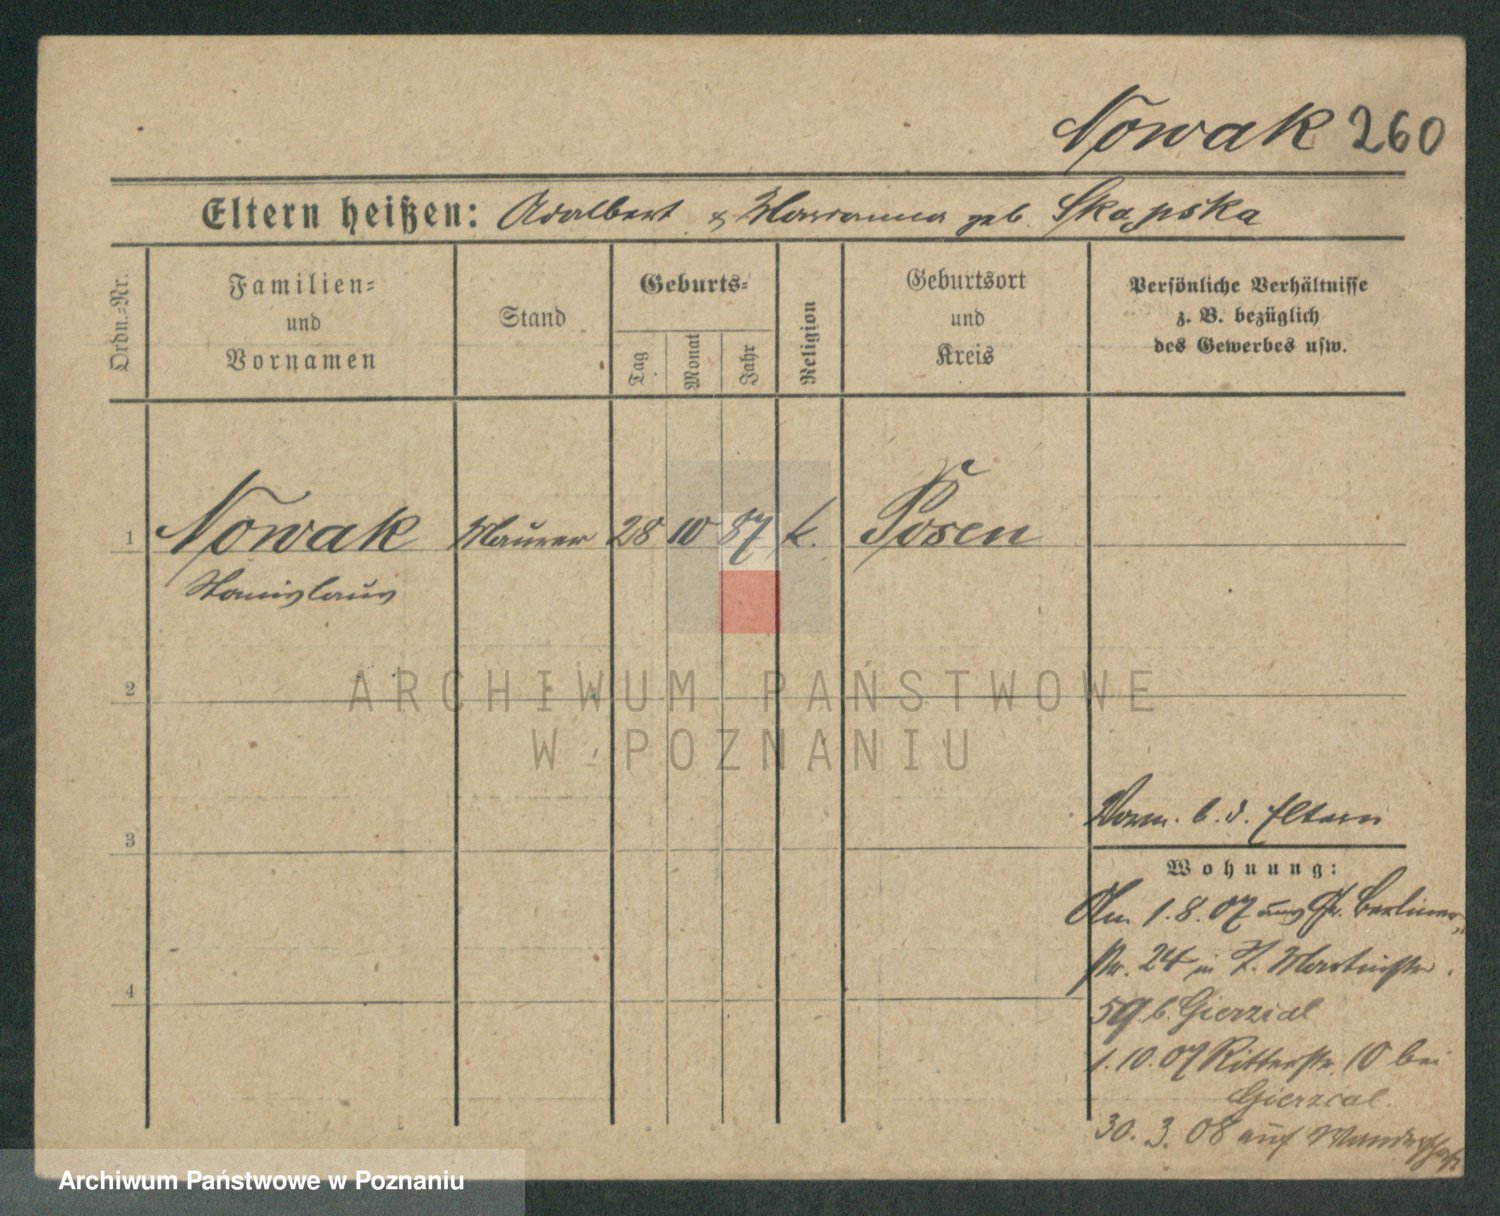 Nowak 260
Eltern heißen: Adalbert & Marianna geb. Skapska
Ordn.=Nr.
Familien=
und
Vornamen
Stand
Geburts=
Tag
Monat
Jahr
Religion
Geburtsort
und
Kreis
Persönliche Verhältnisse
z. B. bezüglich
des Gewerbes usw.
1 Nowak Maurer 28 10 87 k. Posen
Stanislaus
2
ARCHIWUM PAŃSTWOWE
W POZNANIU
3
Vorm. b. d. Eltern
Wohnung:
Am 1.8.07 aus Gr. Berliner-
str. 24 in St. Martinstr.
59 b. Gierzial
4
1.10.07 Ritterstr. 10 bei
Gierzial.
30. 3. 08 auf Wanderschaft
Archiwum Państwowe w Poznaniu